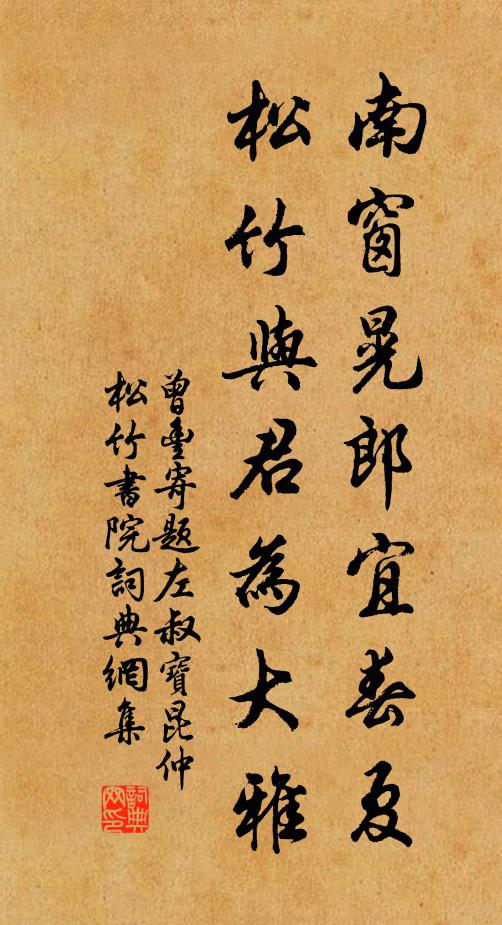 南窗晃郎宜春夏
松竹與君為大雅
曾豐寄題左叔寶昆仲
松竹書院詞典網集
詞典網印